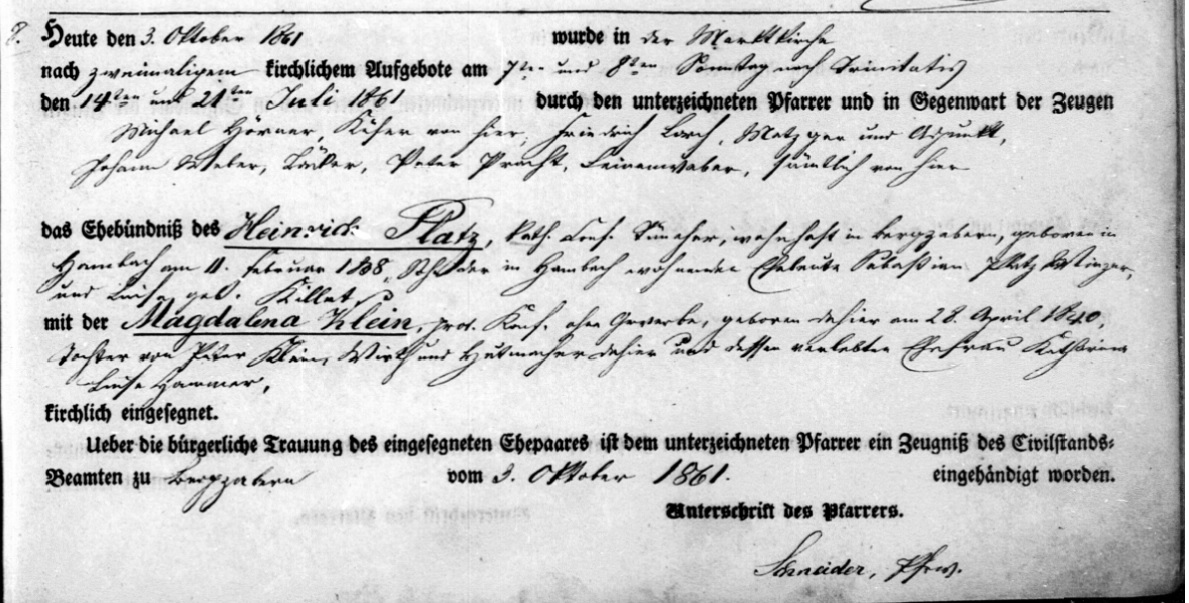 8. Heute den 3. Oktober 1861 wurde in der Marktkirche
nach zweimaligem kirchlichem Aufgebote am 7ten und 8ten Sonntag nach Trinitatis
den 14ten und 21ten Juli 1861 durch den unterzeichneten Pfarrer und in Gegenwart der Zeugen
Michael Hörner, Küfer von hier, Friedrich Lorch, Metzger und Adjunkt,
Johann Weber, Bäcker, Peter Pracht, Leinenweber, sämtlich von hier
das Ehebündniß des Heinrich Platz, kath. Conf. wohnhaft in Bergzabern, geboren in
Hambach am 11. Februar 1838, Sohn der in Hambach wohnenden Eheleute Sebastian Platz Winzer,
und Luise geb. Killet,
mit der Magdalena Klein, prot. Konf. ohne Gewerbe, geboren dahier am 28. April 1840,
Tochter von Peter Klein, Wirth und Hutmacher dahier und dessen verlebten Ehefrau Katharina
Luise Hammer,
kirchlich eingesegnet.
Ueber die bürgerliche Trauung des eingesegneten Ehepaares ist dem unterzeichneten Pfarrer ein Zeugniß des Civilstands-
Beamten zu Bergzabern vom 3. Oktober 1861. eingehändigt worden.
Unterschrift des Pfarrers.
Schneider, Pfrv.